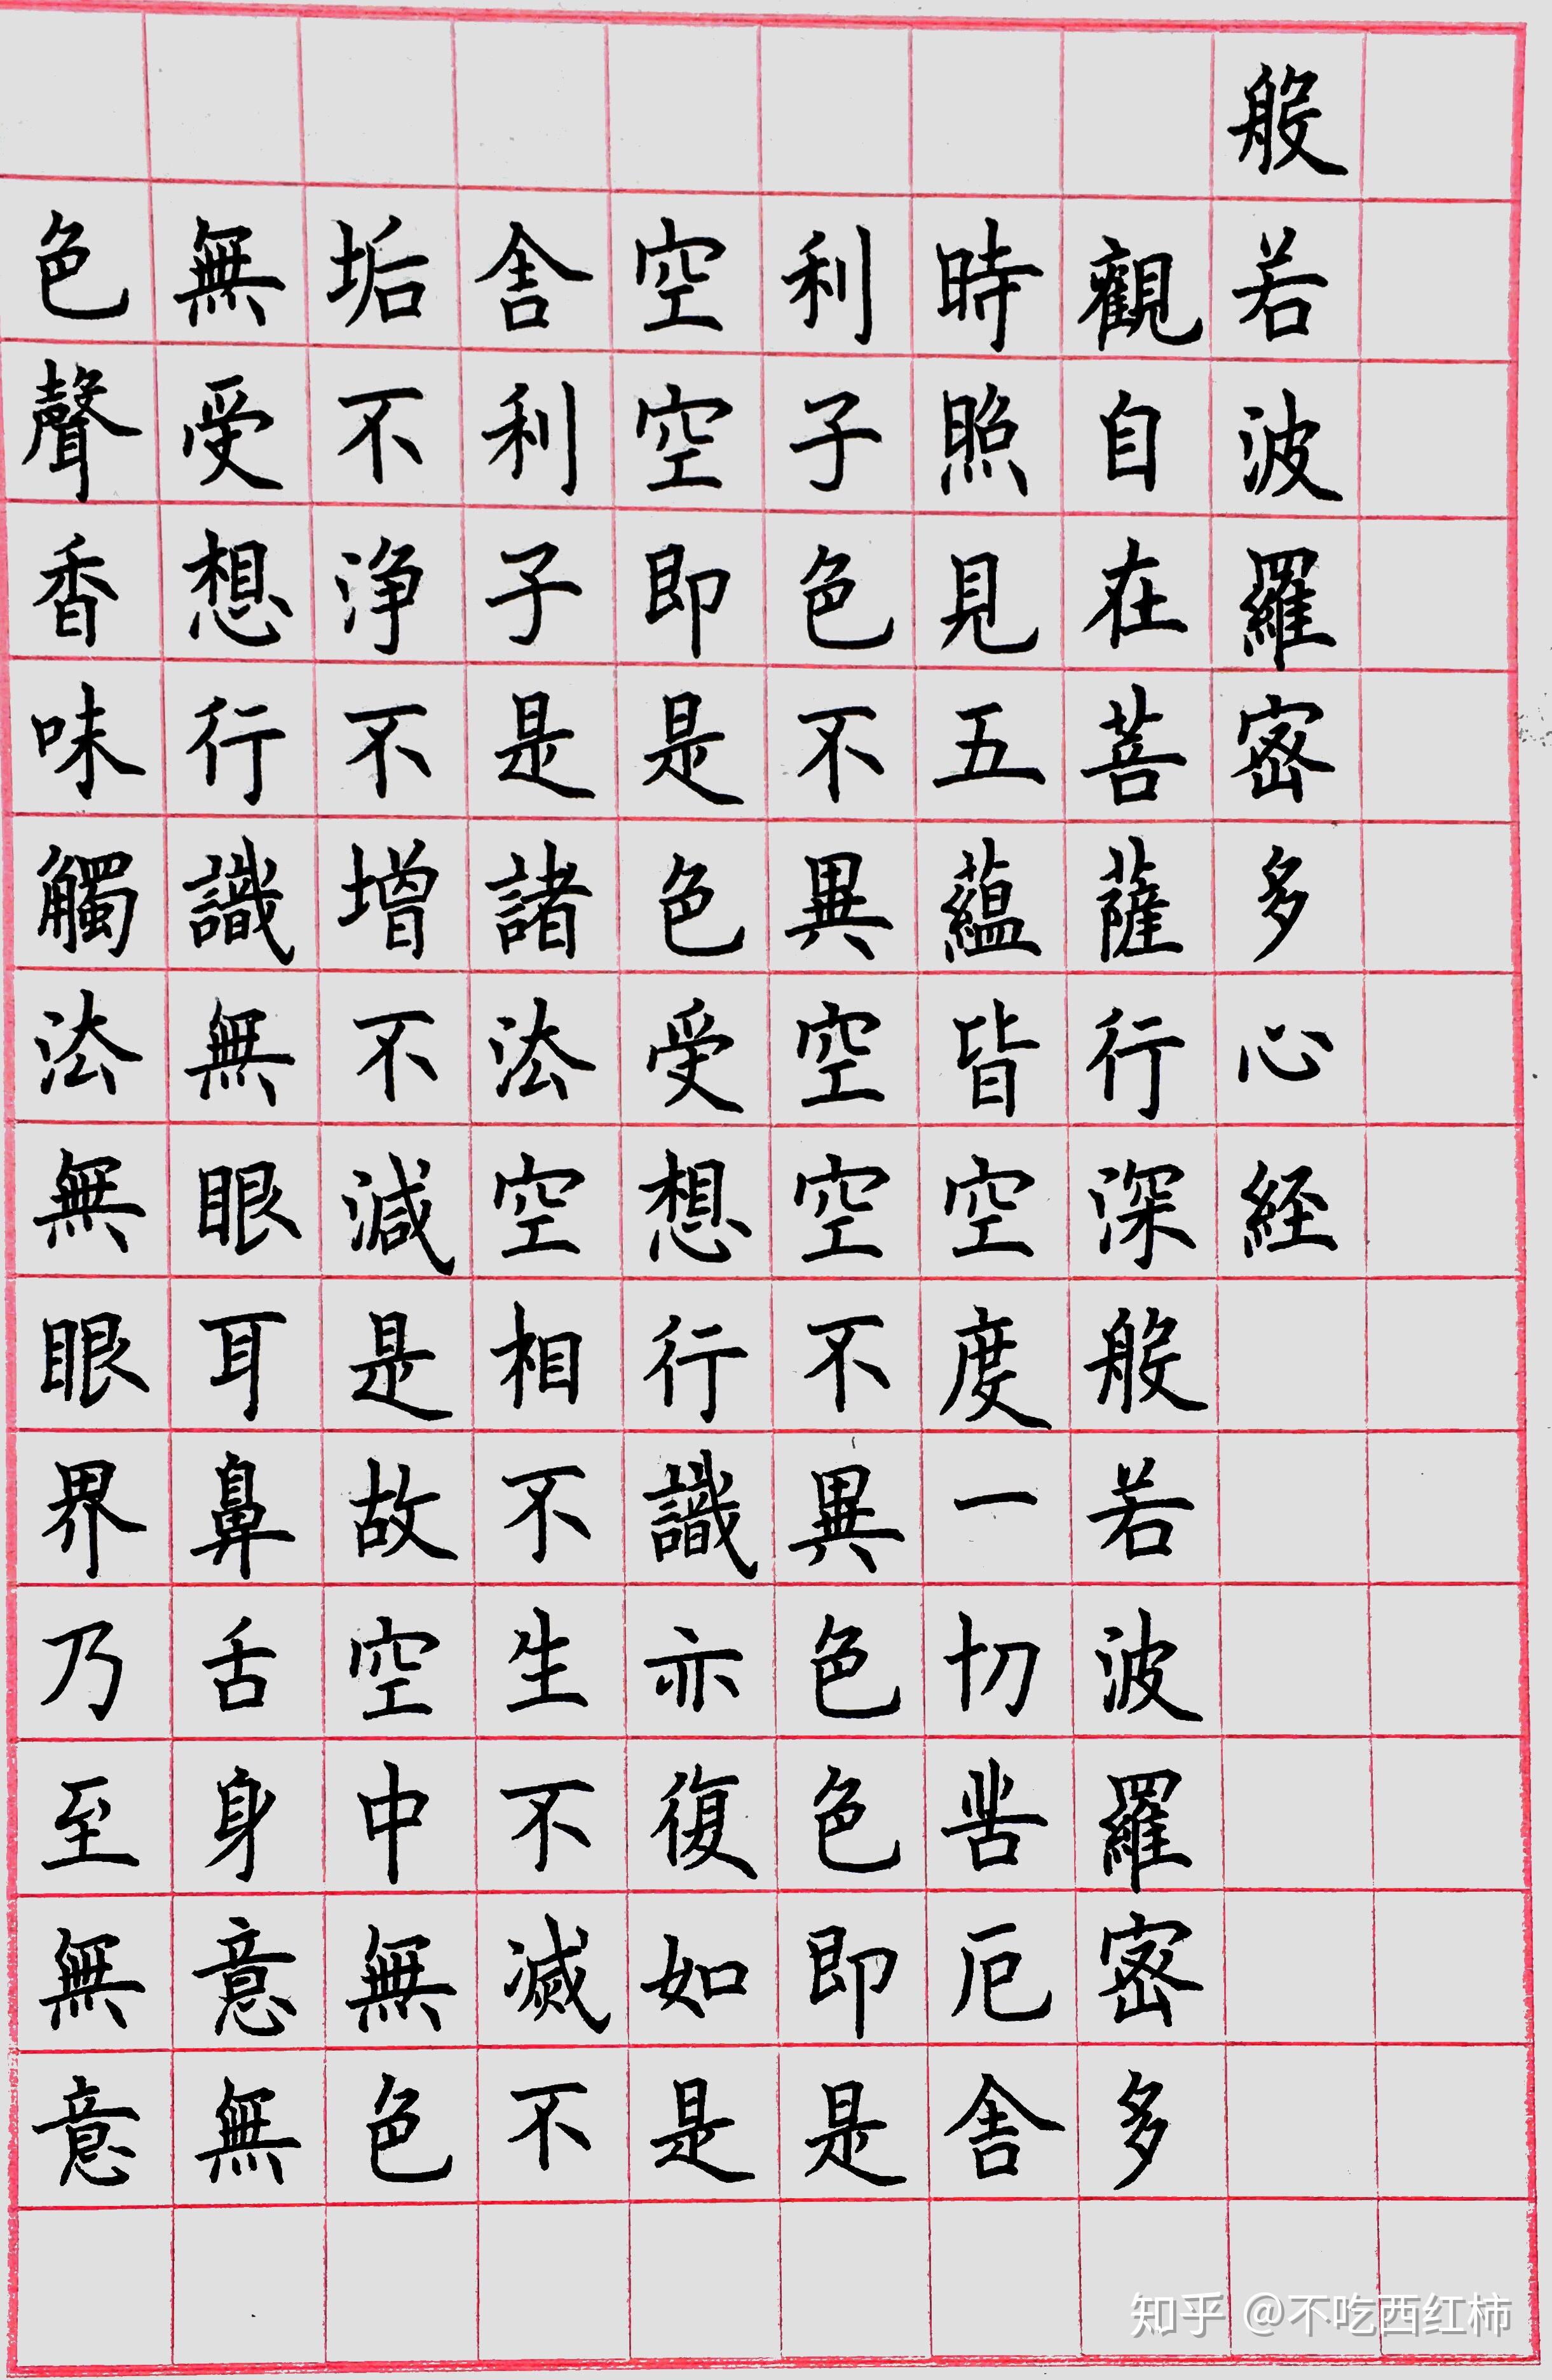 般若波羅密多心経
觀自在菩薩行深般若波羅密多
時照見五蘊皆空度一切苦厄舎
利子色不異空空不異色色即是
空空即是色受想行識亦復如是
舎利子是諸法空相不生不滅不
垢不浄不增不減是故空中無色
無受想行識無眼耳鼻舌身意無
色聲香味觸法無眼界乃至無意
知乎 @不吃西红柿